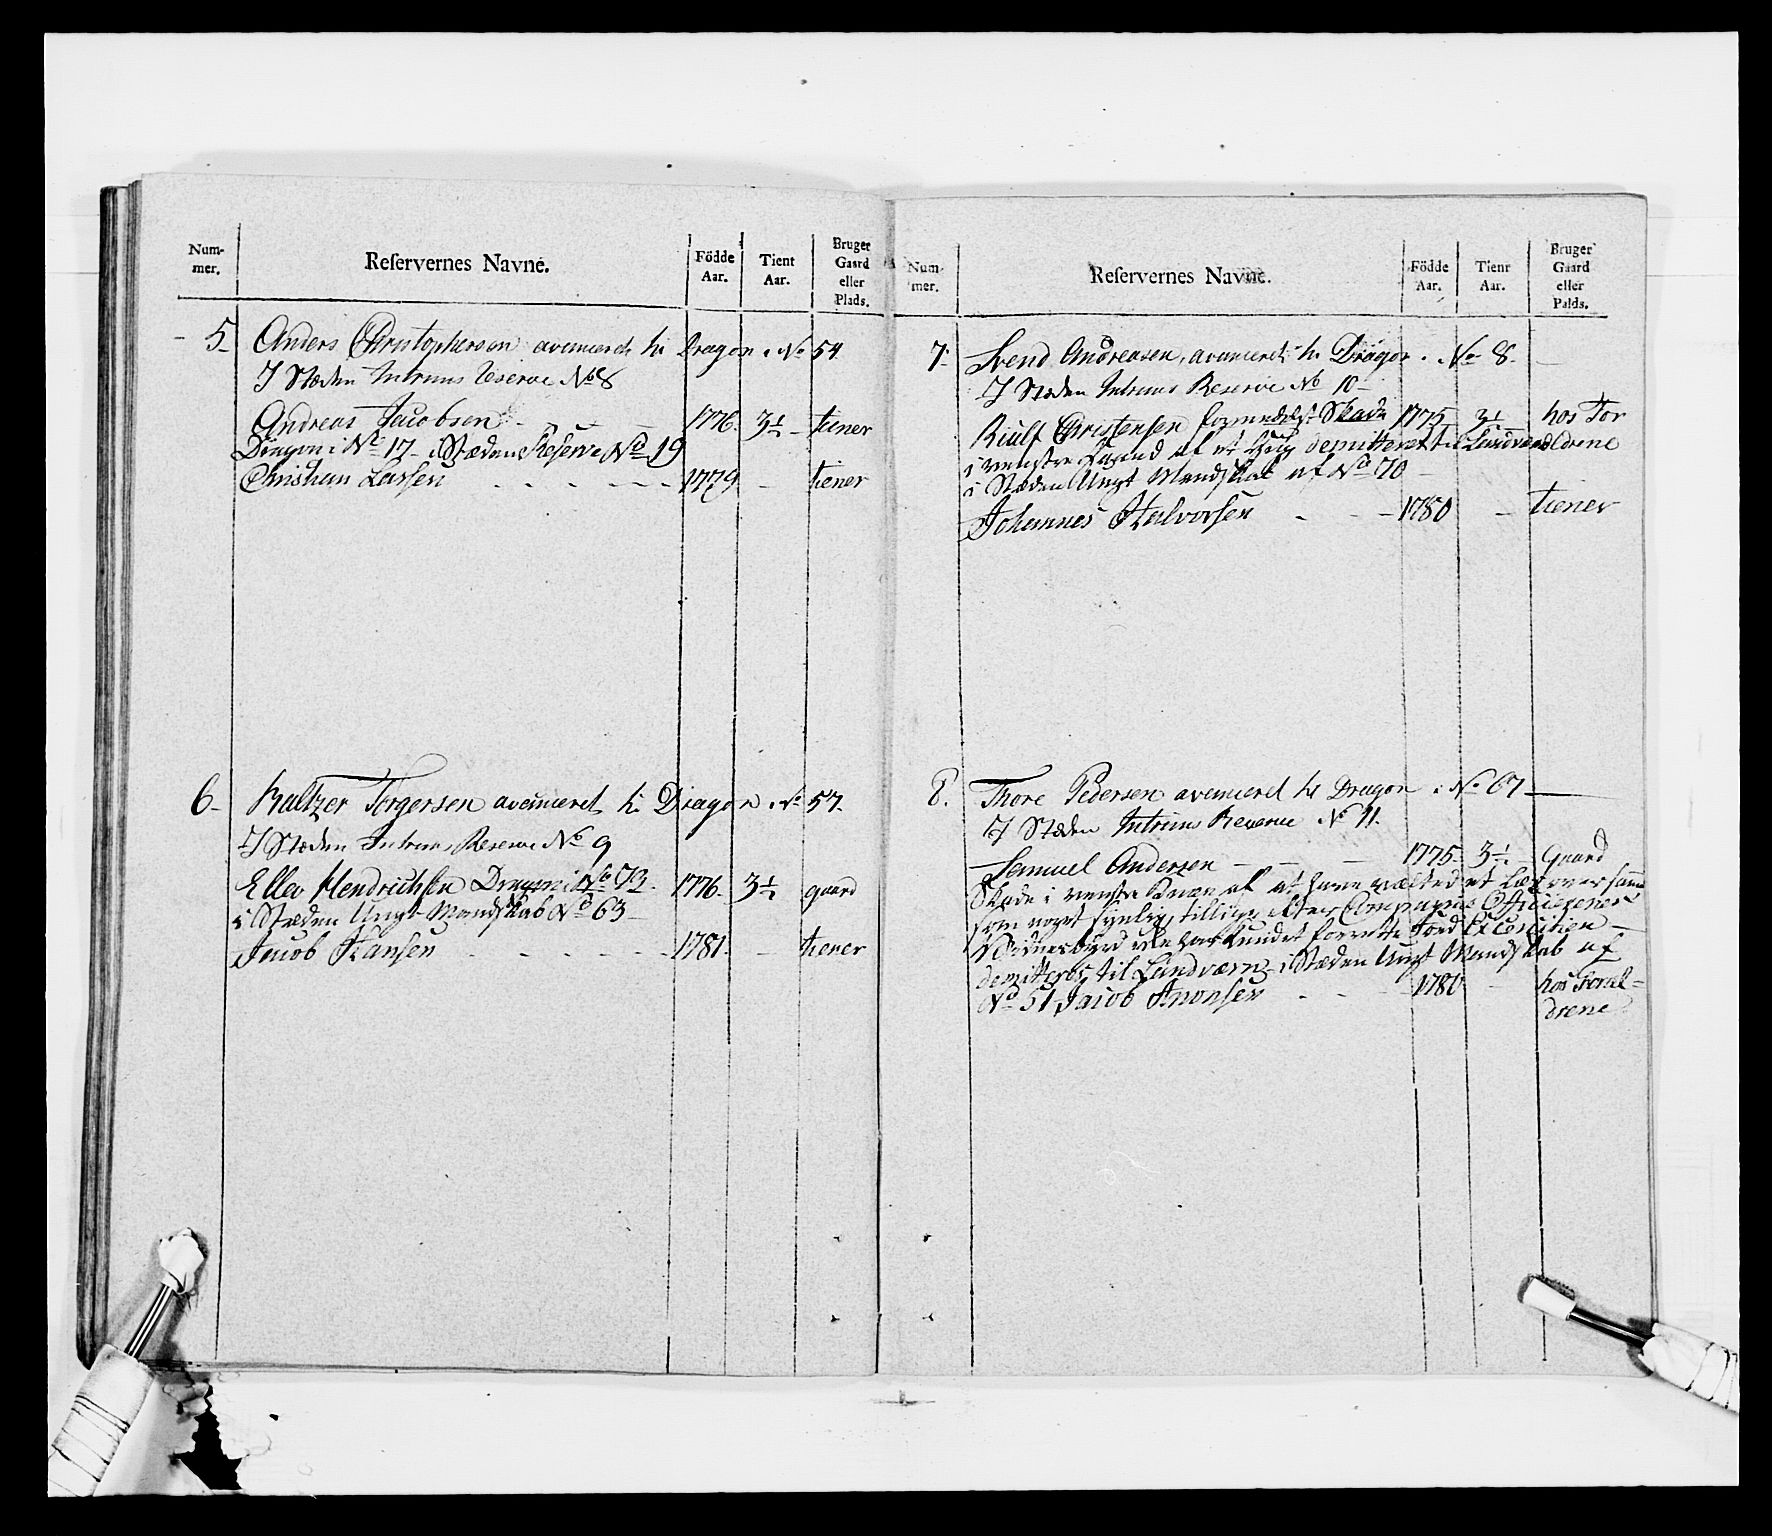 Num-
mer.
Reservernes Navne.
Födde
Aar.
Tient
Aar.
Bruger
Gaard
eller
Plads.
5. Anders Christophersen avanceret til Dragon i No 54
I Stæden Intrims Reserve No 8
Andreas Jacobsen 1776. 3½ tiener
Dragon i No 17 i Stæden Reserve No 19
Christian Larsen 1779 tiener
6. Baltzer Torgersen avanceret til Dragon i No 57.
I Stæden Intrims Reserve No 9
Ellev Hendrichsen Dragon i No 73. 1776. 3½ gaard
i Stæden Ungt Mandskab No 63
Jacob Hansen 1781. tiener
Num-
mer.
Reservernes Navne.
Födde
Aar.
Tienr
Aar.
Bruger
Gaard
eller
Palds.
7. Svend Andreasen, avanceret til Dragon i No 8.
I Stæden Intrims Reserve No 10
Christensen formedelst Skade 1775 3½ hos For
i venstre Haand af et Hug demitteret til Landværn ældrene
i Stæden Ungt Mandskab af No 70
Johannes Halvorsen 1780 tiener
8. Thore Pedersen avanceret til Dragon i No 67
I Stæden Intrims Reserve No 11.
Samuel Andersen 1775. 3½ Gaard
Skade i venstre Knæe af at have vælted et Læs over samme
som noget synlig, tillige efter Compagnie Officierenes
Vidnesbyrd ikke har kundet forrette Foed Exercitien
demitteres til Landværn i Stæden Ungt Mandskab af
No 51 Jacob 1780 hos Foræl-
drene